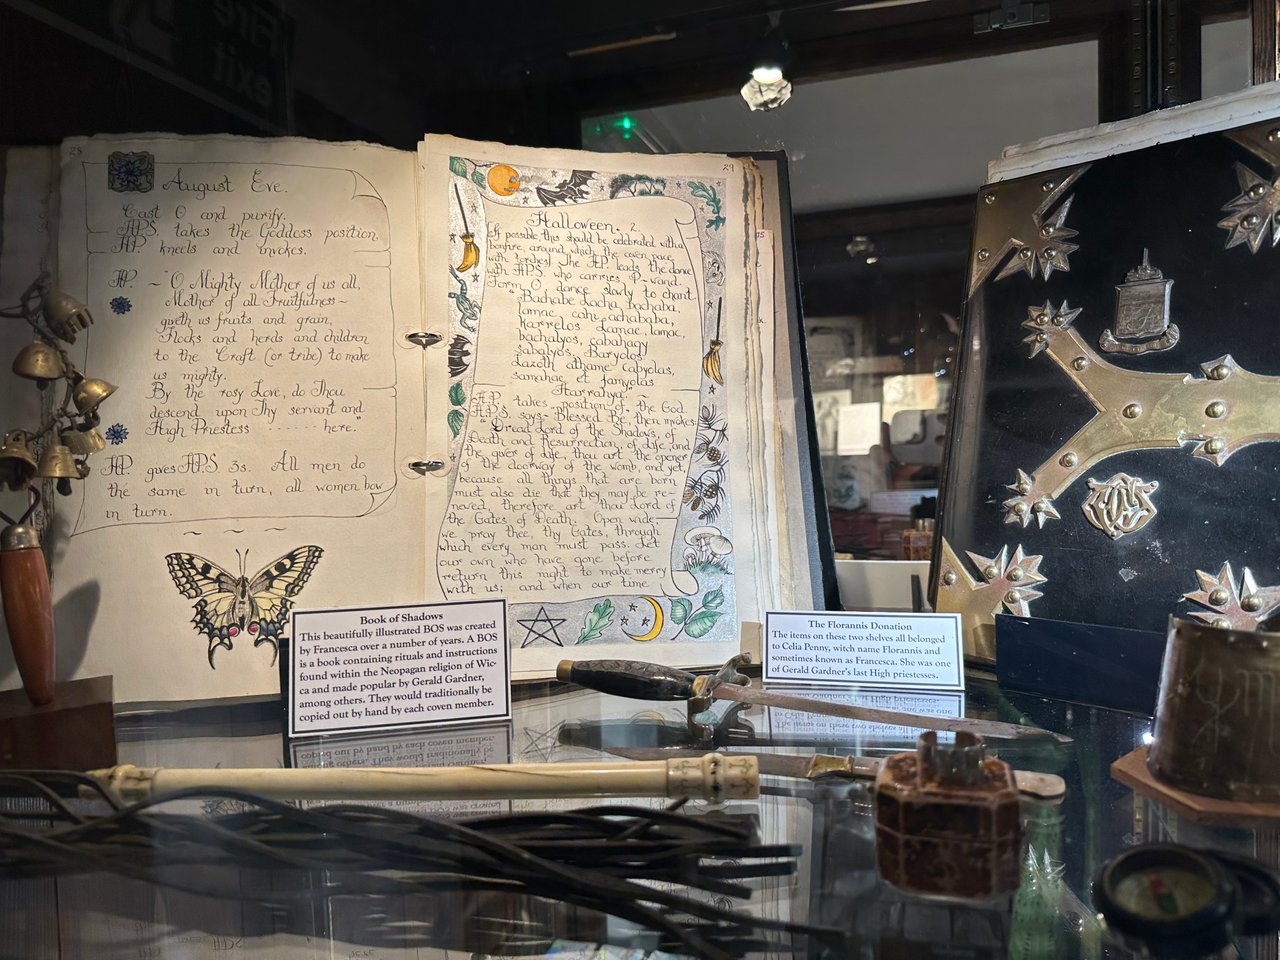 Fire
exit
28
August Eve.
Cast O and purify.
HPS. takes the Goddess position,
HP. kneels and invokes.
HP. ~ "O Mighty Mother of us all,
Mother of all Fruitfulness ~
giveth us fruits and grain,
Flocks and herds and children
to the Craft (or tribe) to make
us mighty.
By the rosy Love, do Thou
descend upon Thy servant and
High Priestess ------ here."
HP. gives HPS. 3s. All men do
the same in turn, all women bow
in turn.
29
Halloween. 2.
If possible this should be celebrated with a
bonfire, around which the coven pace,
with torches. The HP leads the dance
with HPS who carries wand.
Form O, dance slowly to chant.
"Bachabe Lacha, bachaba,
Lamac cahi achababa,
Karrelos Lamac, lamac,
bachalyos, cabahagy
sabalyos, Baryolos,
Lazoth athame Cabyolas,
Samahac et famyolas
Harrahya."
HP. takes position of the God,
HPS. says ~ "Blessed Be, then invokes
"Dread Lord of the Shadows, of
Death and Resurrection, of life and
the giver of life, thou art the opener
of the doorway of the womb, and yet,
because all things that are born
must also die that they may be re-
newed, therefore art thou Lord of
the Gates of Death. Open wide
we pray thee, thy Gates, through
which every man must pass. Let
our own who have gone before
return this night to make merry
with us; and when our time
Book of Shadows
This beautifully illustrated BOS was created
by Francesca over a number of years. A BOS
is a book containing rituals and instructions
found within the Neopagan religion of Wic-
ca and made popular by Gerald Gardner,
among others. They would traditionally be
copied out by hand by each coven member.
The Florannis Donation
The items on these two shelves all belonged
to Celia Penny, witch name Florannis and
sometimes known as Francesca. She was one
of Gerald Gardner's last High priestesses.